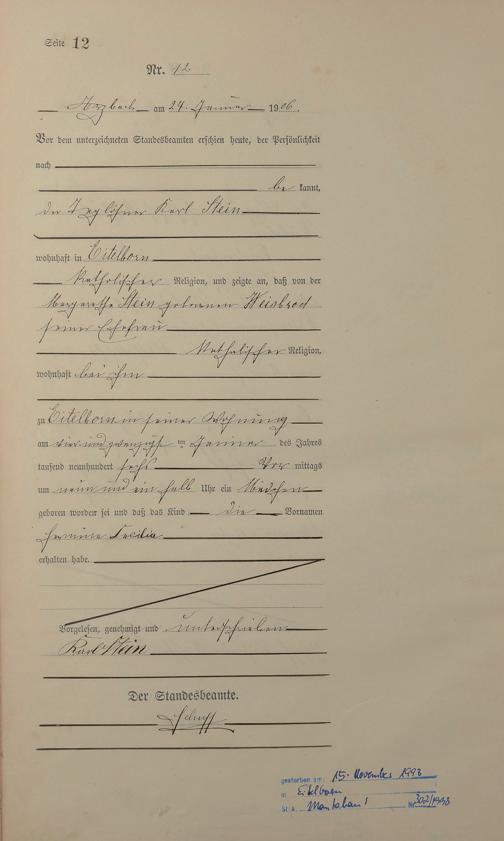 Seite 12
Nr. 12
Arzbach am 24. Januar 1906.
Vor dem unterzeichneten Standesbeamten erschien heute, der Persönlichkeit
nach
be kannt,
der Taglöhner Karl Stein
wohnhaft in Eitelborn
katholischer Religion, und zeigte an, daß von der
Margarethe Stein geborenen Weisbrod
seiner Ehefrau
katholischer Religion,
wohnhaft bei ihm
zu Eitelborn in seiner Wohnung
am vier und zwanzigsten Januar des Jahres
tausend neunhundert sechs Vor mittags
um neun und ein halb Uhr ein Mädchen
geboren worden sei und daß das Kind die Vornamen
Hermine Cecilia
erhalten habe.
Vorgelesen, genehmigt und unterschrieben
Karl Stein
Der Standesbeamte.
gestorben am: 15. November 1993
in Eitelborn
St. A. Montabaur Nr. 302/1993